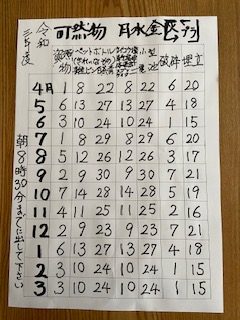 令和
三年度
可燃物 月水金
資源物 ペットボトル 小型 破砕 埋立
4月 1 8 22 8 22 6 20
5 6 13 27 13 27 4 18
6 3 10 24 10 24 1 15
7 1 8 29 8 29 6 20
8 5 12 26 12 26 3 17
9 2 9 30 9 30 7 21
10 7 14 28 14 28 5 19
11 4 11 25 11 25 2 16
12 2 9 23 9 23 7 21
1 6 13 27 13 27 4 18
2 3 10 24 10 24 1 15
3 3 10 24 10 24 1 15
朝8時30分までに出して下さい